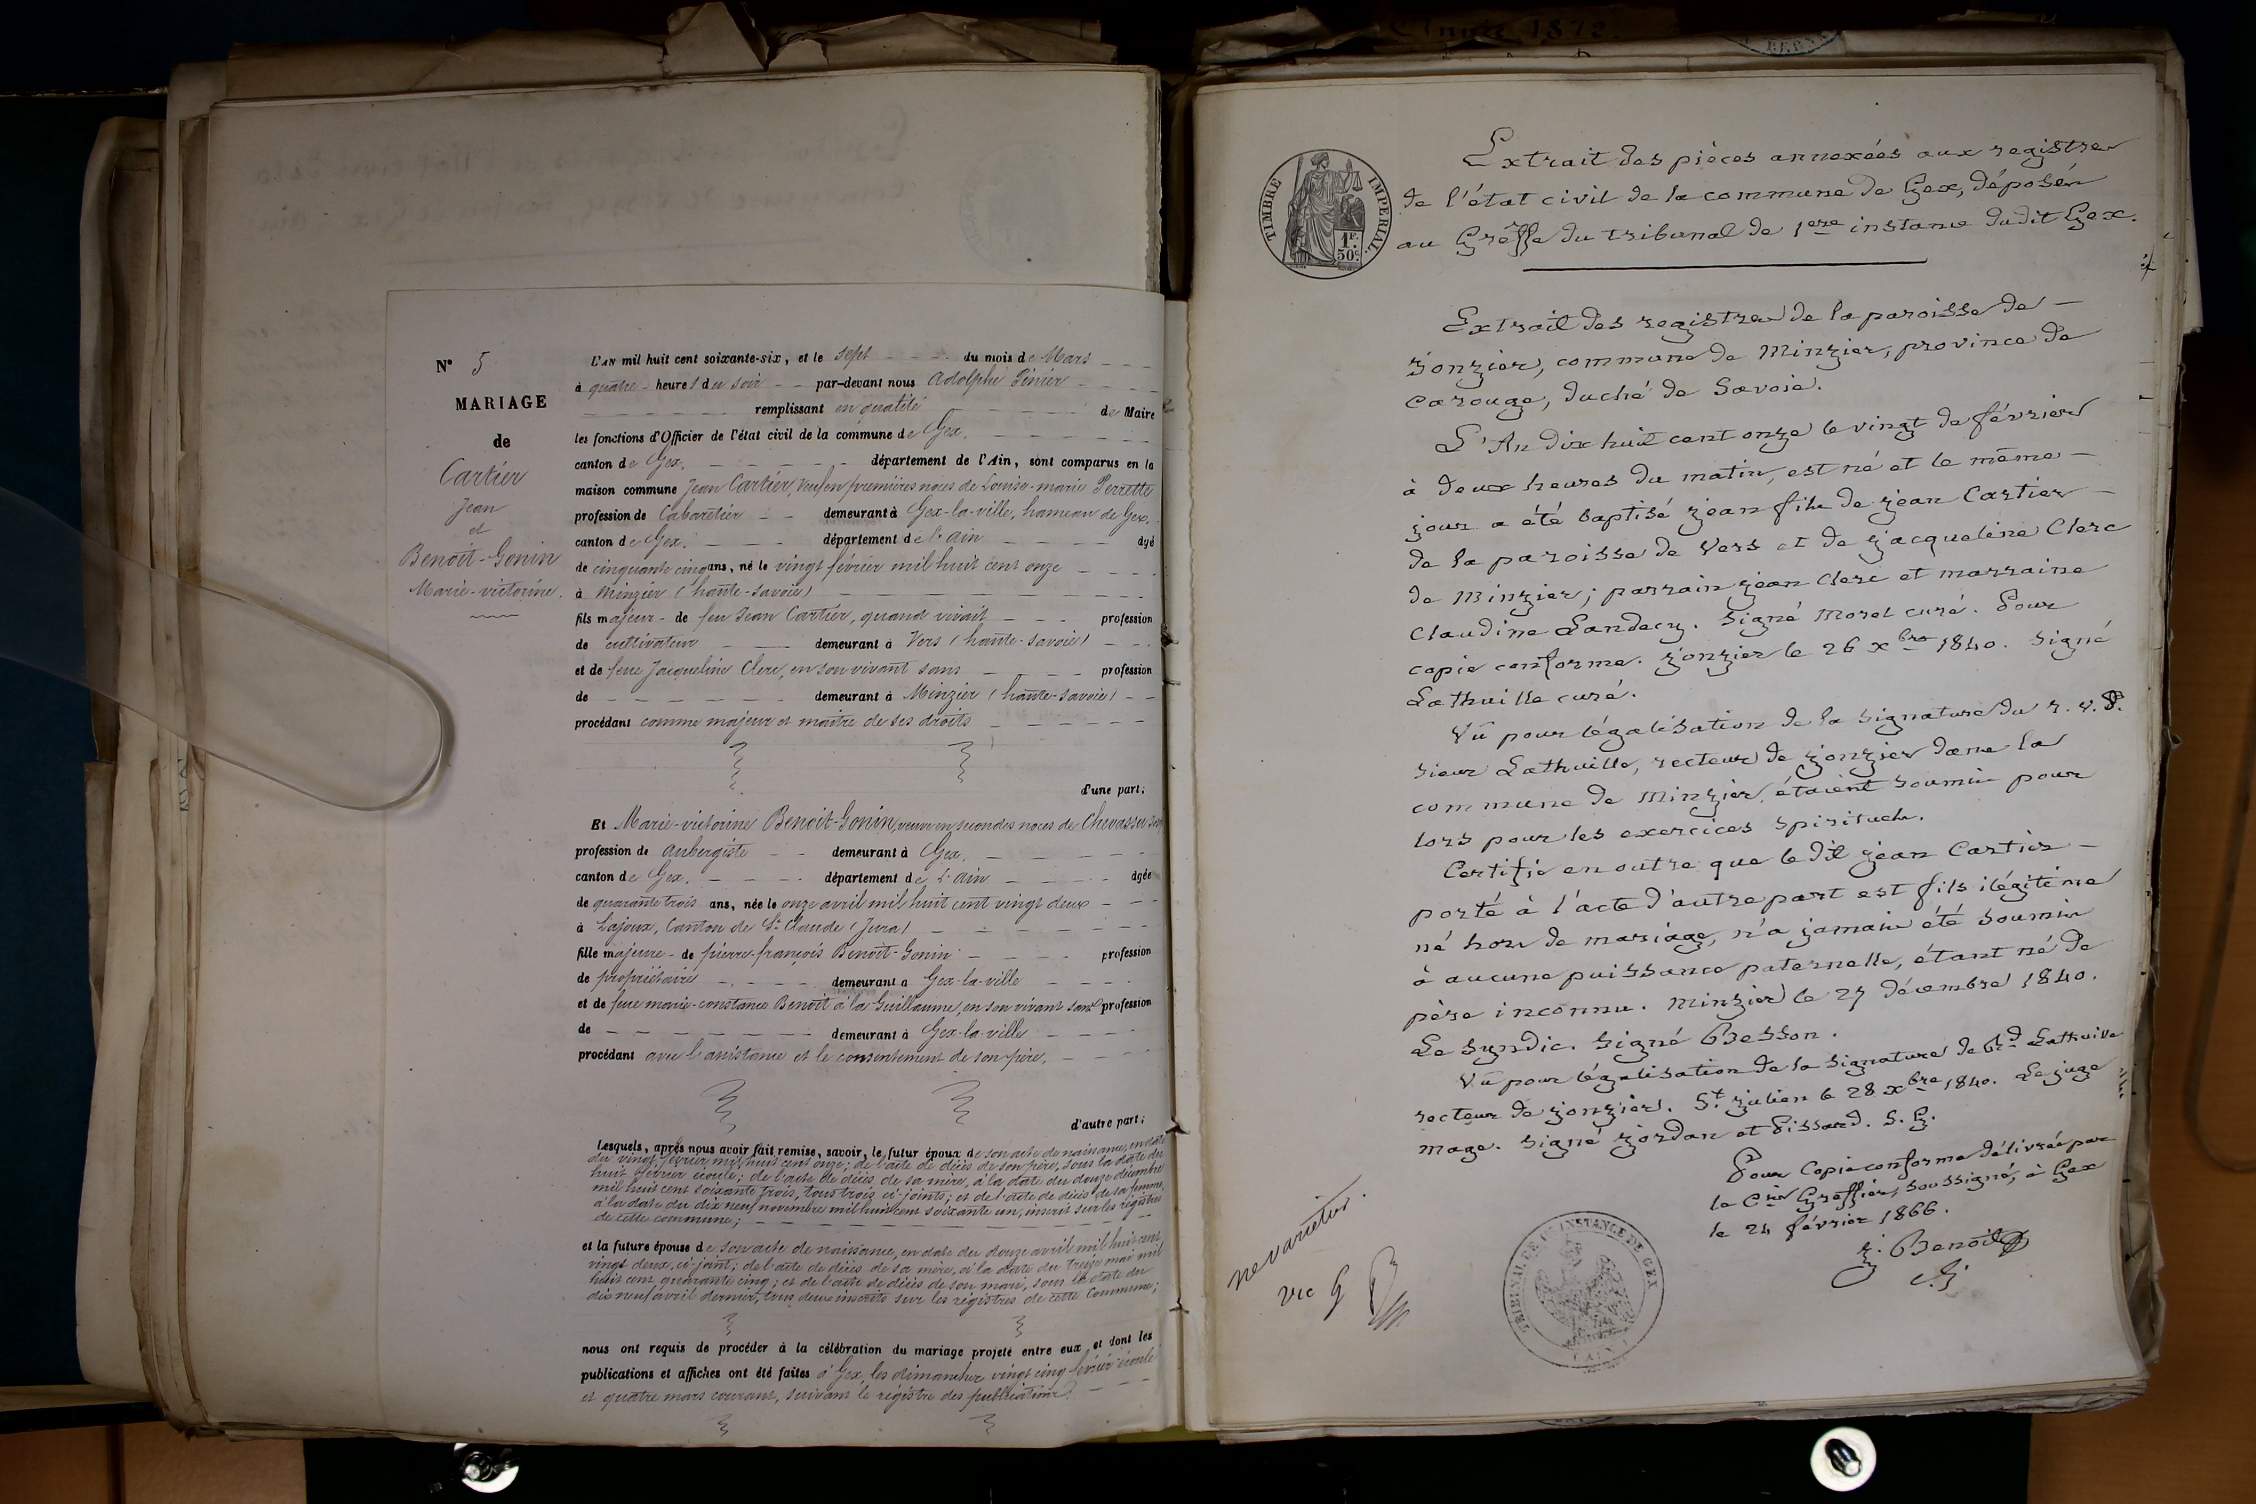 Année 1872
N° 5
MARIAGE
de
Cartier
Jean
et
Benoit-Gonin
Marie-victorine.
L'AN mil huit cent soixante-six, et le sept du mois de Mars
à quatre heures du soir par-devant nous Adolphe
remplissant en qualité de Maire
les fonctions d'Officier de l'état civil de la commune de Gex,
canton de Gex, département de l'Ain, sont comparus en la
maison commune Jean Cartier, veuf en premières noces de Louise-marie Perrette
profession de Cabaretier demeurant à Gex-la-ville, hameau de Gex,
canton de Gex. département de l'ain âgé
de cinquante cinq ans, né le vingt février mil huit cent onze
à Minzier (haute-savoie)
fils majeur de feu Jean Cartier, quand vivait profession
de cultivateur demeurant à Vers (haute-savoie)
et de feue Jacqueline Clerc, en son vivant sans profession
de demeurant à Minzier (haute-savoie)
procédant comme majeur et maitre de ses droits
d'une part;
Et Marie-victorine Benoit-Gonin, veuve en secondes noces de Chevassu
profession de aubergiste demeurant à Gex,
canton de Gex. département de l'ain âgée
de quarante trois ans, née le onze avril mil huit cent vingt deux
à Lajoux, Canton de St Claude (Jura)
fille majeure de pierre-françois Benoit-Gonin profession
de propriétaire demeurant à Gex-la-ville
et de feue marie-constance Benoit à la Guillaume, en son vivant sans profession
de demeurant à Gex-la-ville
procédant avec l'assistance et le consentement de son père,
d'autre part;
Lesquels, après nous avoir fait remise, savoir, le futur époux de son acte de naissance, en date
du vingt février mil huit cent onze; de l'acte de décès de son père, sous la date du
huit février écoulé; de l'acte de décès de sa mère, à la date du douze décembre
mil huit cent soixante trois, tous trois ci-joints; et de l'acte de décès de sa femme,
à la date du dix neuf novembre mil huit cent soixante un, inscrit sur les registres
de cette commune;
et la future épouse de son acte de naissance, en date du douze avril mil huit cent
vingt deux, ci-joint; de l'acte de décès de sa mère, à la date du treize mai mil
huit cent quarante cinq; et de l'acte de décès de son mari, sous la date du
dix neuf avril dernier, tous deux inscrits sur les registres de cette Commune;
nous ont requis de procéder à la célébration du mariage projeté entre eux, et dont les
publications et affiches ont été faites à Gex, les dimanches vingt cinq février écoulé
et quatre mars courant, suivant le registre des publications
TIMBRE IMPERIAL.
1F.
50c
Extrait des pièces annexées aux registres
de l'état civil de la commune de Gex, déposés
au Greffe du tribunal de 1ere instance dudit Gex.
Extrait des registres de la paroisse de
Jonzier, commune de Minzier, province de
Carouge, duché de Savoie.
L'An dix huit cent onze le vingt de février
à deux heures du matin, est né et le même
jour a été baptisé jean fils de jean Cartier
de la paroisse de Vers et de jacqueline Clerc
de Minzier; parrain jean Clerc et marraine
Claudine Landecy. Signé Morel curé. Pour
copie conforme. Jonzier le 26 xbre 1840. Signé
Lathuille curé.
Vû pour légalisation de la signature du r. v. S.
sieur Lathuille, recteur de Jonzier dans la
commune de Minzier, étaient soumis pour
lors pour les exercices spirituels.
Certifie en outre que le dit jean Cartier
porté à l'acte d'autre part est fils ilégitime
né hors de mariage, n'a jamais été soumis
à aucune puissance paternelle, étant né de
père inconnu. Minzier le 27 décembre 1840.
Le Syndic. Signé Besson.
Vû pour légalisation de la signature de Rd Lathuille
recteur de Jonzier. St Julien le 28 xbre 1840. Le juge
mage. Signé Jordan et Pissard. S. G.
Pour Copie conforme délivrée par
le Cis Greffier, soussigné, à Gex
le 24 février 1866.
J. Benoit
ne varietur.
TRIBUNAL DE 1ERE INSTANCE DE GEX
(AIN)